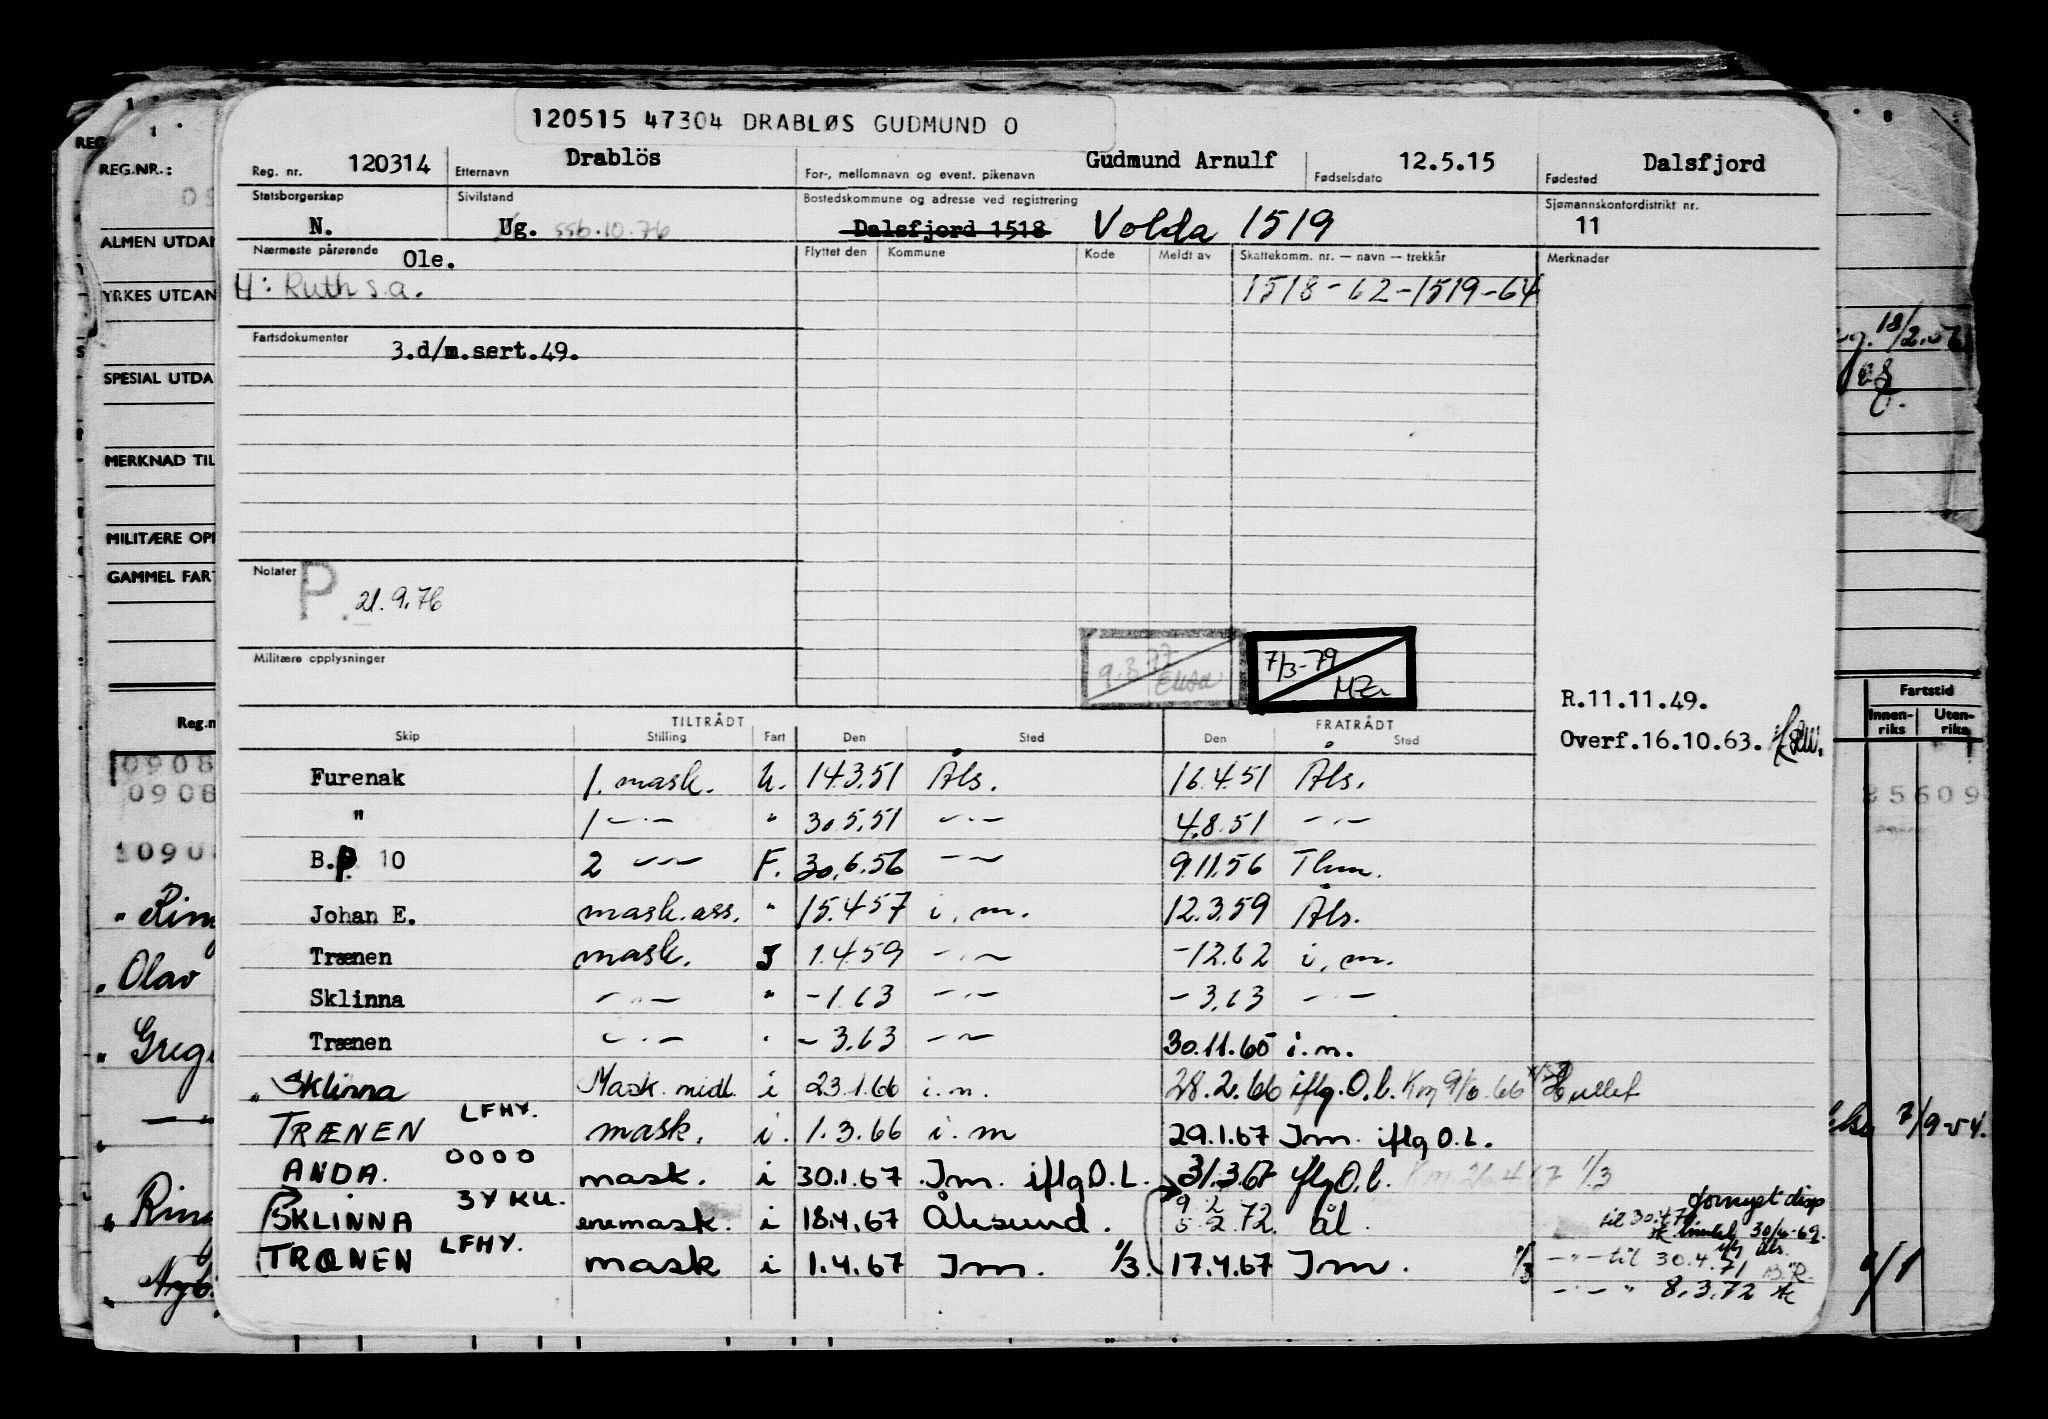 120515 47304 DRABLØS GUDMUND O
Reg. nr. 120314 Etternavn Drablös For-, mellomnavn og event. pikenavn Gudmund Arnulf Fødselsdato 12.5.15 Fødested Dalsfjord
Statsborgerskap N. Sivilstand Ug. ssb.10.76 Bostedskommune og adresse ved registrering Dalsfjord 1518 Volda 1519 Sjømannskontordistrikt nr. 11
Nærmeste pårørende Ole. Flyttet den Kommune Kode Meldt av Skattekomm. nr. — navn — trekkår Merknader
H: Ruth s.a. 1518-62-1519-64
Fartsdokumenter 3.d/m.sert.49.
Notater P. 21.9.76
Militære opplysninger
9.3.77
7/3-79
R.11.11.49.
Overf.16.10.63.
TILTRÅDT FRATRÅDT
Skip Stilling Fart Den Sted Den Sted
Furenak 1. mask. U. 14.3.51 Åls. 16.4.51 Åls.
" 1 —·— " 30.5.51 —·— 4.8.51 —·—
B.P. 10 2 —·— F. 30.6.56 —·— 9.11.56 Thm.
Johan E. mask.ass. " 15.4.57 i.m. 12.3.59 Åls.
Trænen mask. J 1.4.59 —·— -12.62 i.m.
Sklinna —·— " -1.63 —·— -3.63 —·—
Trænen —·— " -3.63 —·— 30.11.65 i.m.
" Sklinna Mask. midl. i 23.1.66 i.m. 28.2.66 iflg.O.L.
TRÆNEN LFHY. mask. i. 1.3.66 i.m 29.1.67 Im. iflg O.L.
ANDA. 0000 mask. i 30.1.67 Im. iflg O.L. 31.3.67 iflg O.L. 1/3
SKLINNA 3YKU. enemask. i 18.4.67 Ålesund. 9.2.72. ål
TRÆNEN LFHY. mask i 1.4.67 Im. 1/3. 17.4.67 Im. 1/3
fornyet disp
til 30.4.70
30/4-69.
—"— til 30.4.71
—·— " 8.3.72
REG.NR.:
ALMEN UTDAN
YRKES UTDAN
SPESIAL UTDA
MERKNAD TIL
MILITÆRE OPP
GAMMEL FART
Reg.n
Fartstid
Innen-riks Uten-riks
0908
0908
25609
" Ring
" Olav
7/9-54.